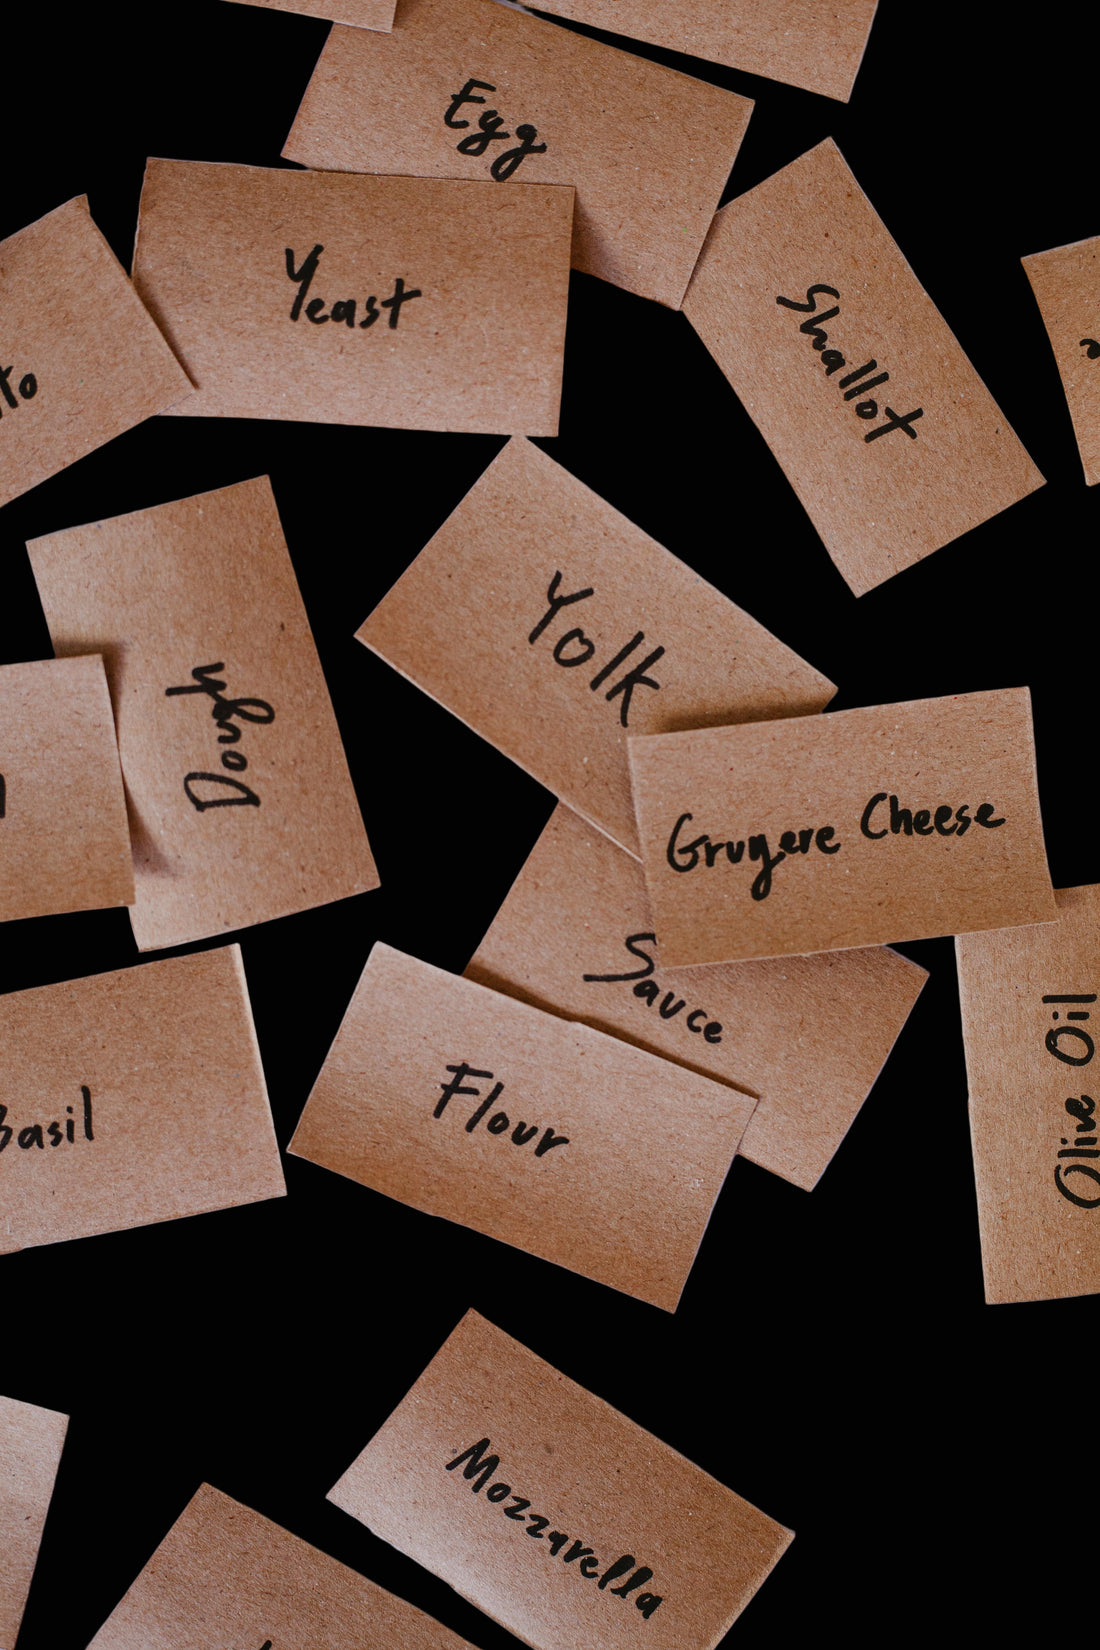 Egg
Yeast
Shallot
Yolk
Dough
Gruyere Cheese
Sauce
Olive Oil
Flour
Basil
Mozzarella